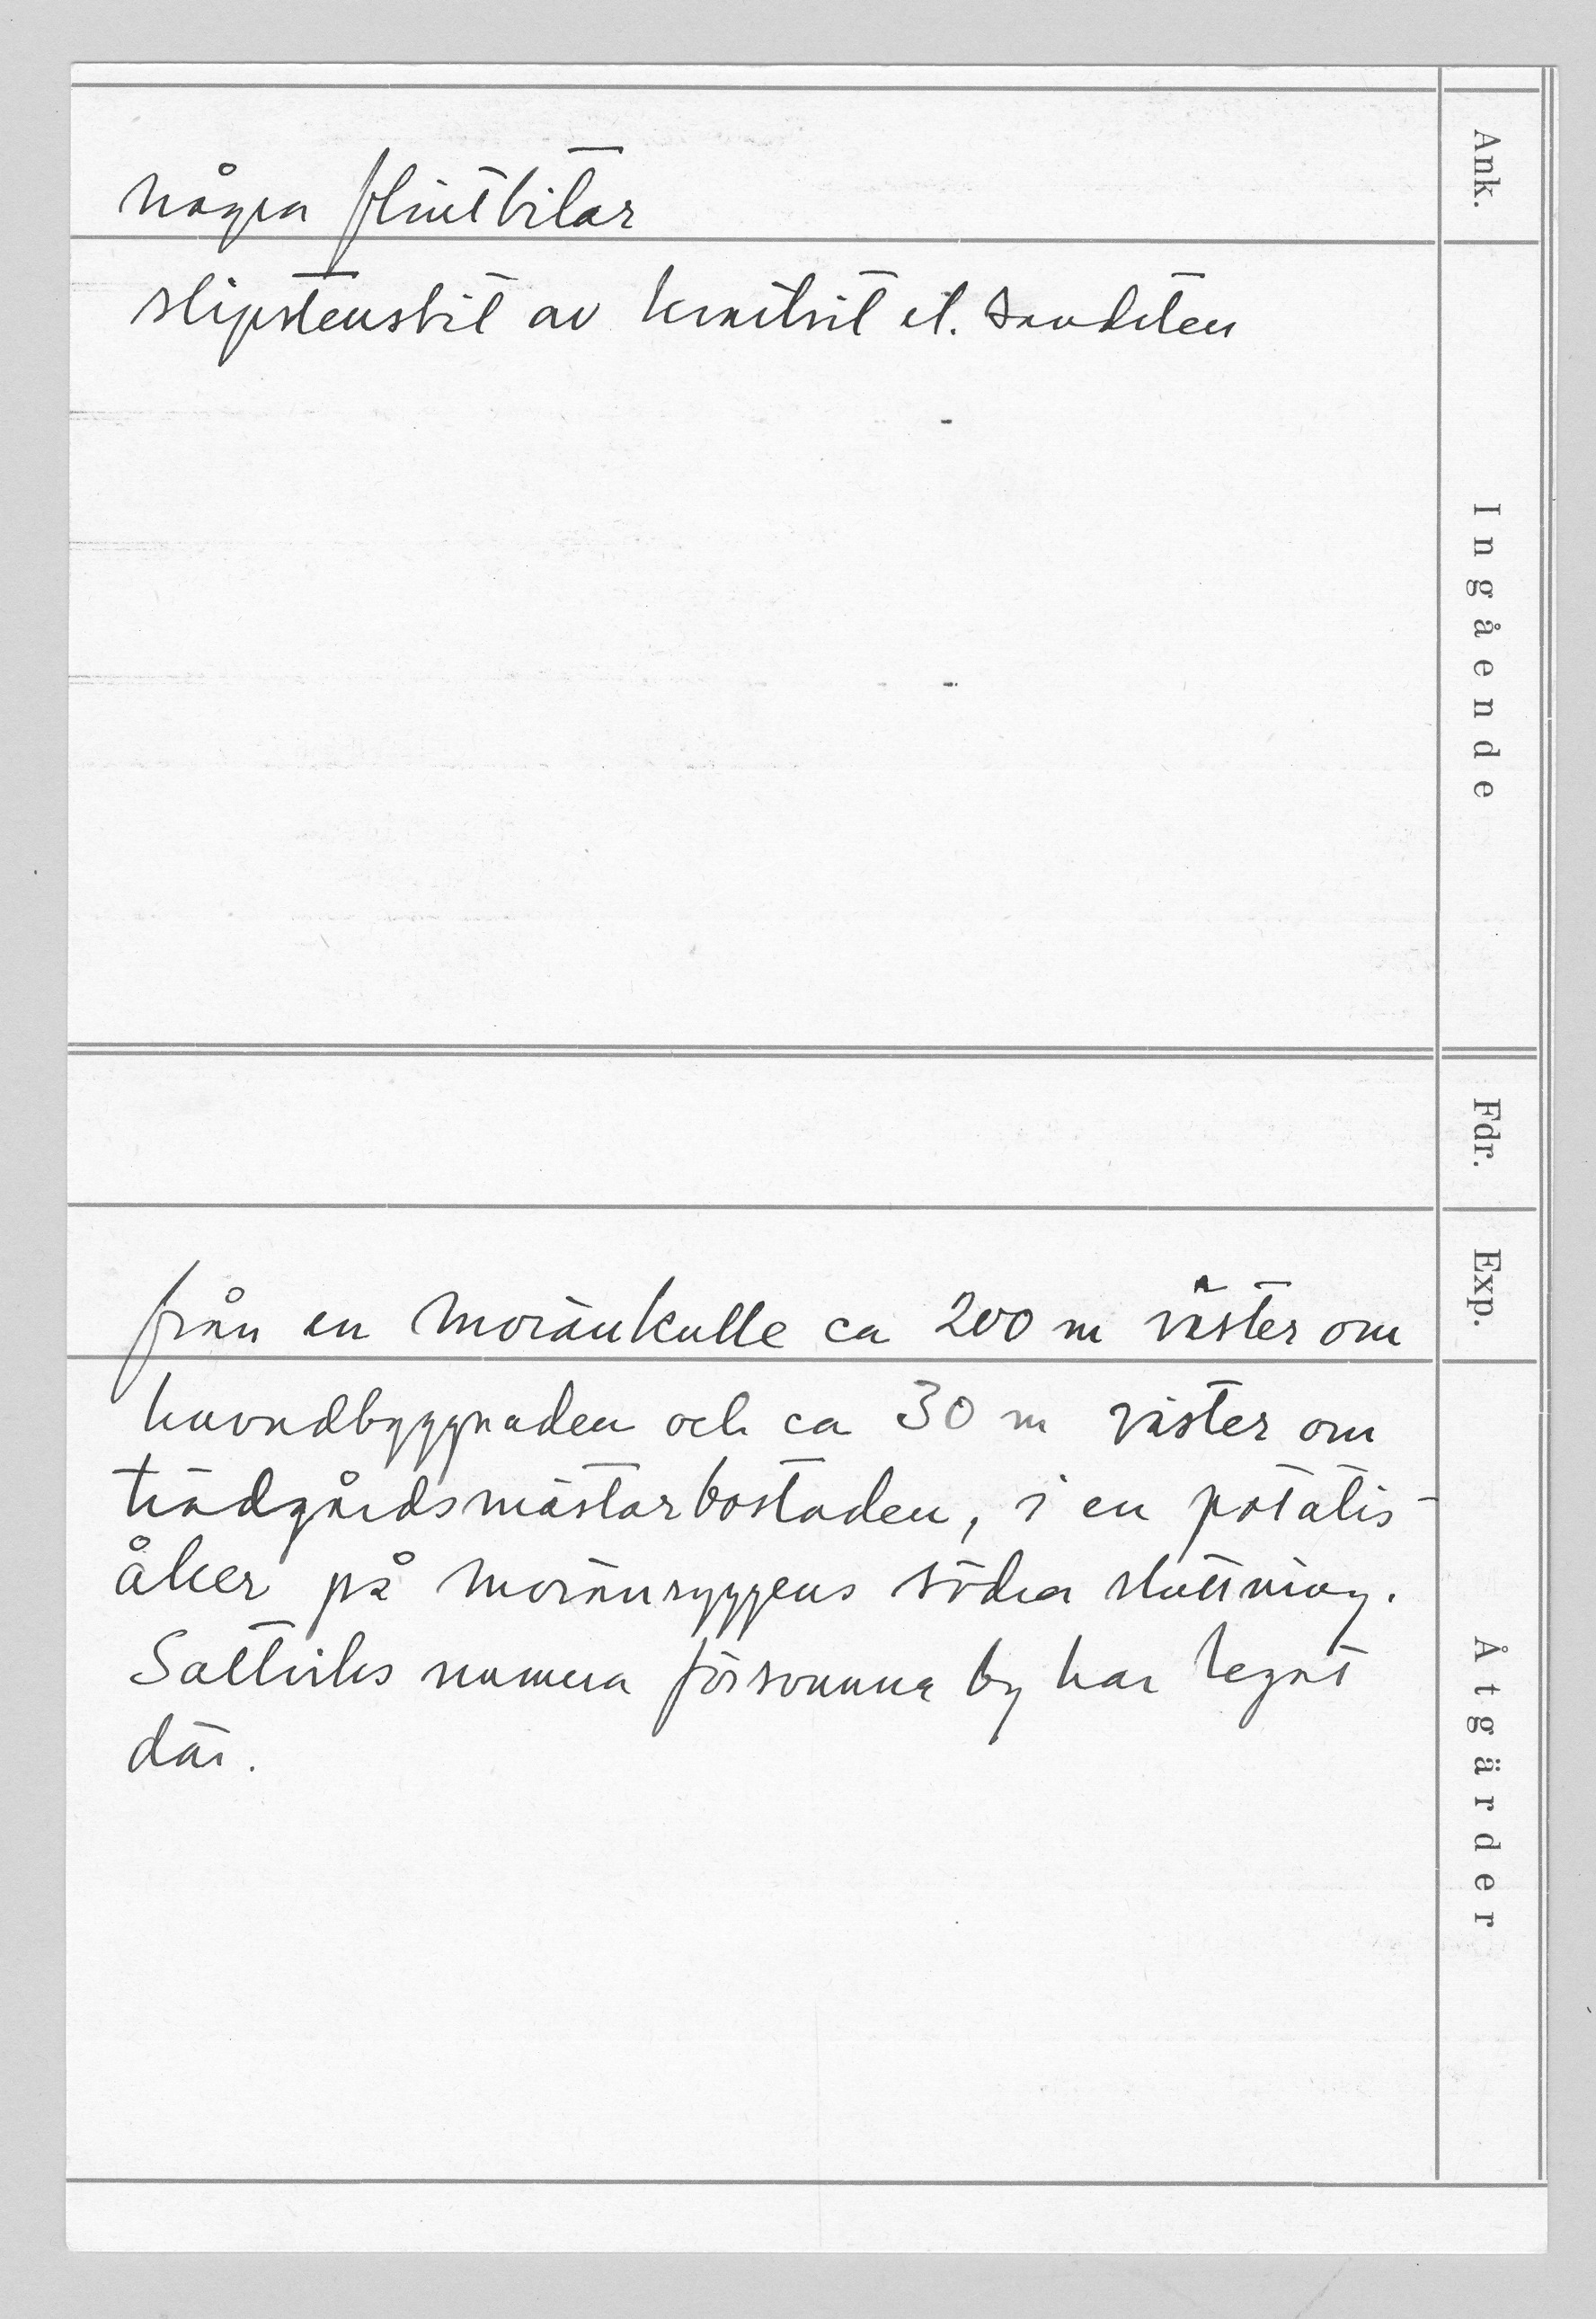 Ank.
några flintbitar
slipstensbit av kvartsit el. sandsten
Ingående
Fdr.
Exp.
från en moränkulle ca 200 m väster om
huvudbyggnaden och ca 30 m väster om
trädgårdsmästarbostaden, i en potatis-
åker på moränryggens södra sluttning.
numera försvunna by har legat
där.
Åtgärder